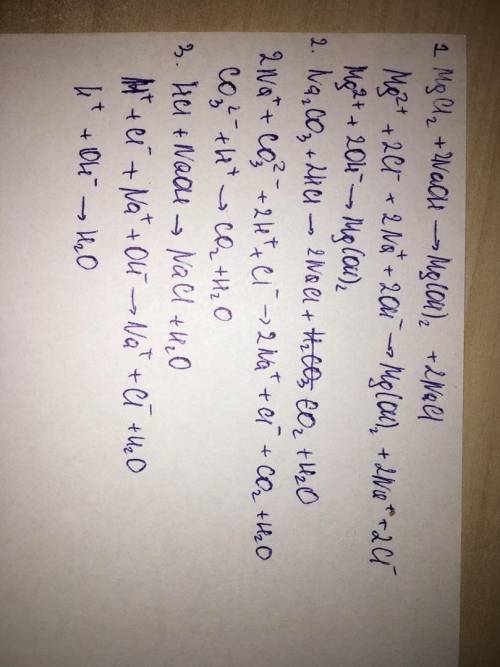 1. MgCl₂ + 2NaOH → Mg(OH)₂ + 2NaCl
Mg²⁺ + 2Cl⁻ + 2Na⁺ + 2OH⁻ → Mg(OH)₂ + 2Na⁺ + 2Cl⁻
Mg²⁺ + 2OH⁻ → Mg(OH)₂
2. Na₂CO₃ + 2HCl → 2NaCl + H₂CO₃ CO₂ + H₂O
2Na⁺ + CO₃²⁻ + 2H⁺ + Cl⁻ → 2Na⁺ + Cl⁻ + CO₂ + H₂O
CO₃²⁻ + H⁺ → CO₂ + H₂O
3. HCl + NaOH → NaCl + H₂O
H⁺ + Cl⁻ + Na⁺ + OH⁻ → Na⁺ + Cl⁻ + H₂O
H⁺ + OH⁻ → H₂O